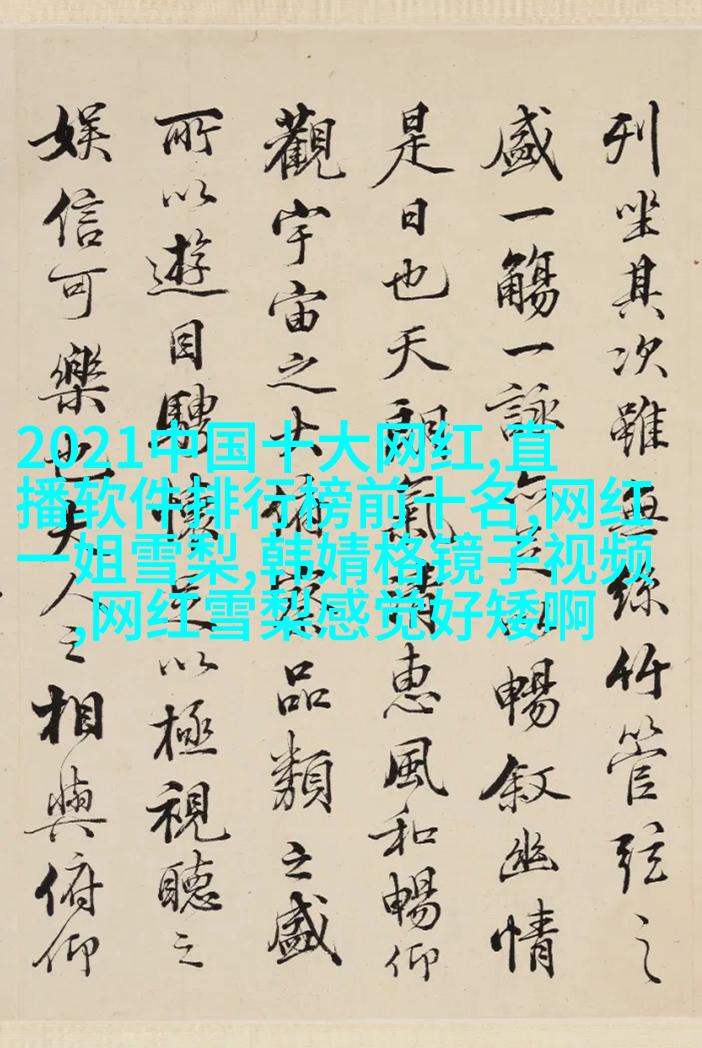 列坐其次雖無絲竹管弦之
盛一觴一詠亦足以暢叙幽情
是日也天朗氣清惠風和暢仰
觀宇宙之大俯察品類之盛
所以遊目騁懷足以極視聽之
娱信可樂也夫人之相與俯仰
2021中国十大网红,直
播软件排行榜前十名,网红
一姐雪梨,韩婧格镜子视频
,网红雪梨感觉好矮啊